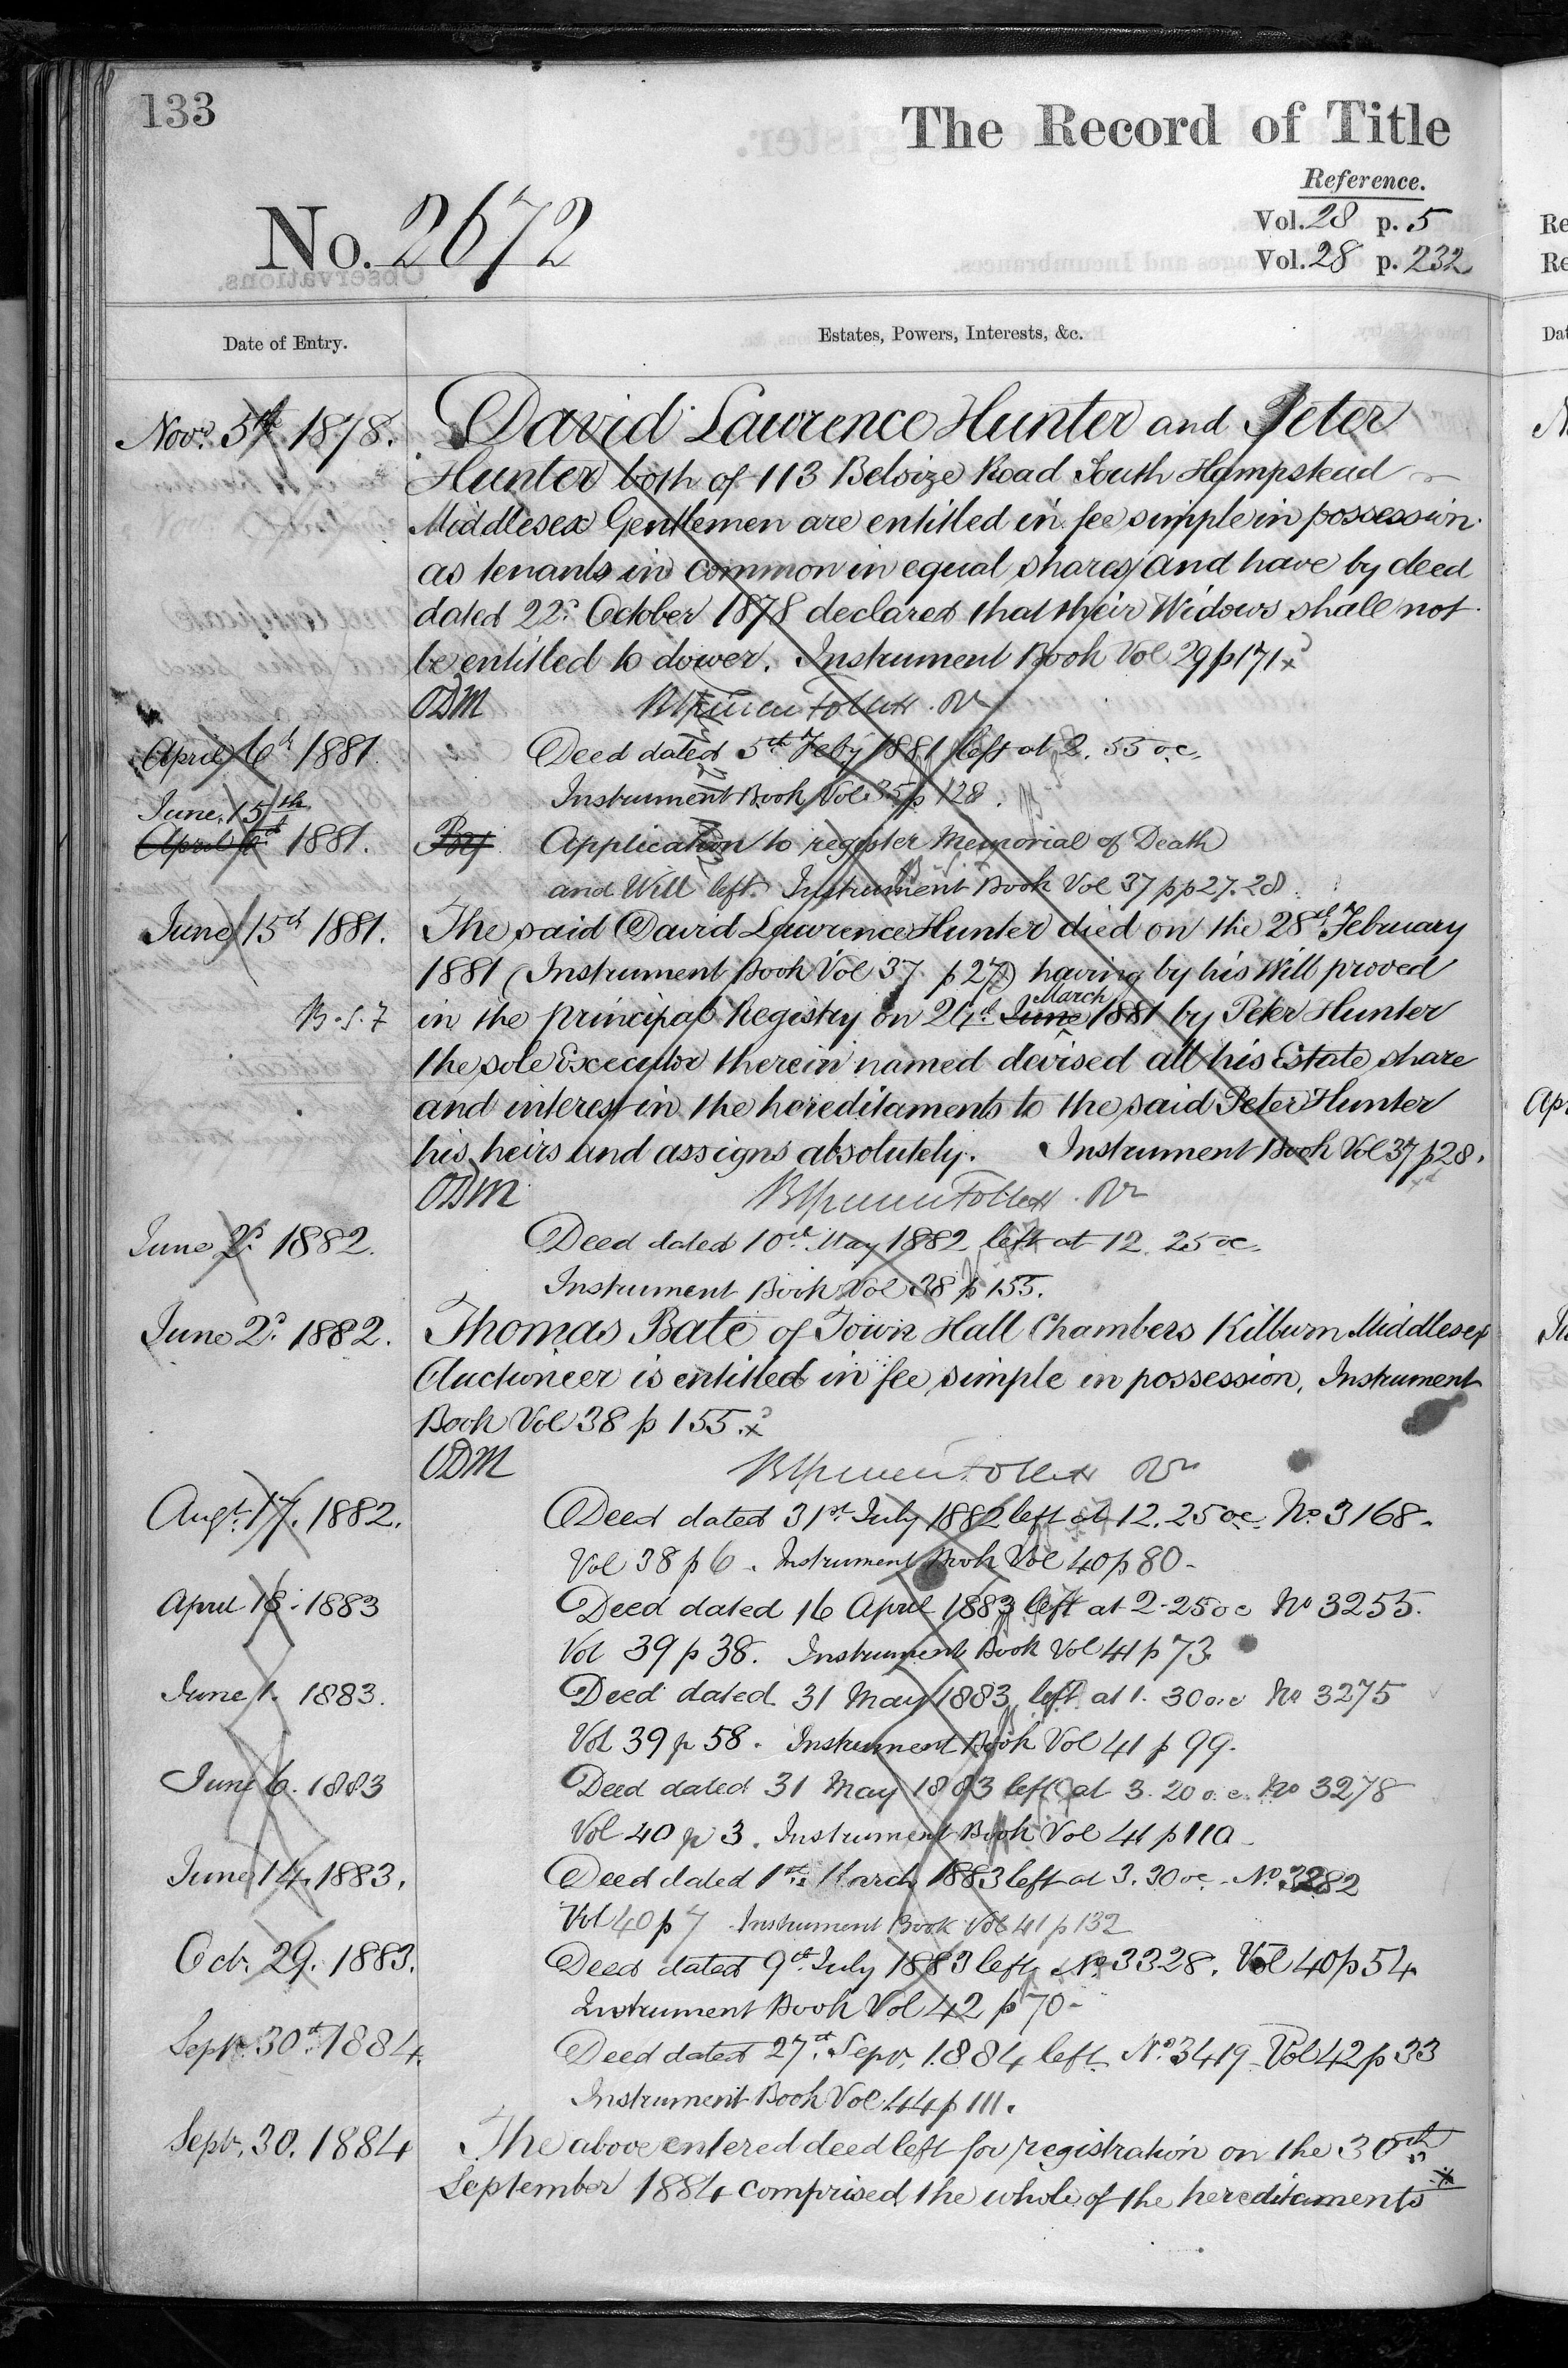 133
The Record of Title
Reference.
No. 2672
Vol. 28 p. 5
Vol. 28 p. 232
Date of Entry.
Estates, Powers, Interests, &c.
Novr. 5th 1878. David Lawrence Hunter and Peter
Hunter both of 113 Belsize Road South Hampstead
Middlesex Gentlemen are entitled in fee simple in possession
as tenants in common in equal shares and have by deed
dated 22d October 1878 declared that their Widows shall not
be entitled to dower. Instrument Book Vol 29 p 171 x
ODM
April 6th 1881. Deed dated 5th Feby 1881 left at 2.55 oc.
Instrument Book Vol 35 p 128.
June 15th
April 6th 1881. Application to register Memorial of Death
and Will left. Instrument Book Vol 37 pp 27.28.
June 15th 1881. The said David Lawrence Hunter died on the 28th February
1881 (Instrument Book Vol 37 p 27) having by his Will proved
March
in the principal Registry on June 1881 by Peter Hunter
the sole Executor therein named devised all his Estate share
and interest in the hereditaments to the said Peter Hunter
his heirs and assigns absolutely. Instrument Book Vol 37 p 28.
ODM
June 2d 1882. Deed dated 10th May 1882 left at 12.25 oc.
Instrument Book Vol 38 p 155.
June 2d 1882. Thomas Bate of Town Hall Chambers Kilburn Middlesex
Auctioneer is entitled in fee simple in possession. Instrument
Book Vol 38 p 155. x
ODM
Augt. 17. 1882. Deed dated 31st July 1882 left at 12.25 oc. No. 3168.
Vol 38 p 6. Instrument Book Vol 40 p 80-
April 18. 1883 Deed dated 16 April 1883 left at 2-25 oc No 3255.
Vol 39 p 38. Instrument Book Vol 41 p 73.
June 1. 1883. Deed dated 31 May 1883 left at 1.30 o.c No 3275
Vol 39 p 58. Instrument Book Vol 41 p 99.
June 6. 1883 Deed dated 31 May 1883 left at 3.20 o.c. No 3278
Vol 40 p 3. Instrument Book Vol 41 p 110-
June 14. 1883. Deed dated 1st March 1883 left at 3.30 oc. No. 3282
Vol 40 p 7 Instrument Book Vol 41 p 132
Octr. 29. 1883. Deed dated 9th July 1883 left No. 3328. Vol 40 p 54
Instrument Book Vol 42 p 70-
Septr. 30th 1884. Deed dated 27th Septr. 1884 left No. 3419 Vol 42 p 33
Instrument Book Vol 44 p 111.
Septr. 30. 1884 The above entered deed left for registration on the 30th
September 1884 comprised the whole of the hereditaments